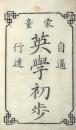 童蒙
自邇
英學初步
行遠